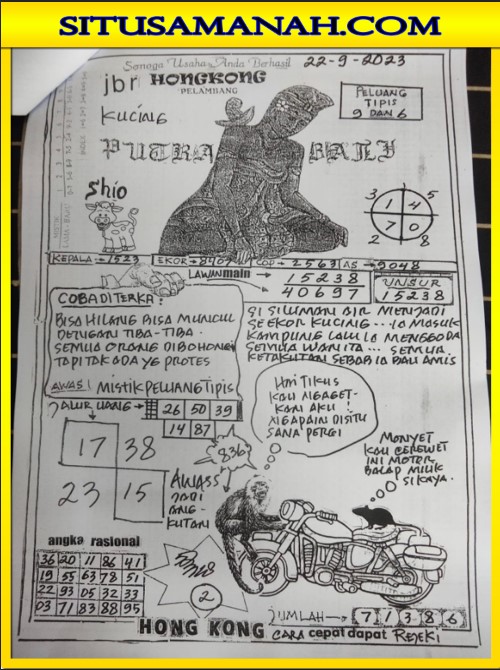 SITUSAMANAH.COM
Semoga Usaha Anda Berhasil 22-9-2023
jbr HONGKONG
PELAMBANG
KUCING
PELUANG
TIPIS
9 DAN 6
PUTRA BALI
Shio
3 5
1 4
7 0
2 8
KEPALA→1523 EKOR→8407 COP→2563 AS→9048
LAWAN main → 15238
40697
UNSUR
15238
COBA DI TERKA:
BISA HILANG BISA MUNCUL
DENGAN TIBA-TIBA.
SEMUA ORANG DI BOHONG
TAPI TAK ADA YG PROTES
SI SILUMAN AIR MENJADI
SEEKOR KUCING... IA MASUK
KAMPUNG LALU IA MENGGODA
SEMUA WANITA... SEMUA
KETAKUTAN SEBAB IA BAU AMIS
AWAS! MISTIK PELUANG TIPIS
JALUR UANG→ 26 50 39
14 87
836
17 38
23 15
AWASS
JADI
ANG-
KUTAN
HAI TIKUS
KAU NGAGET-
KAN AKU!
NGAPAIN DISITU
SANA PERGI
MONYET
KAU CEREWET
INI MOTOR
BALAP MILIK
SI KAYA.
angka rasional
36 20 11 86 41
19 55 63 78 51
22 93 05 32 33
03 71 83 88 95
2
JUMLAH→ 7 1 3 8 6
HONG KONG CARA cepat dapat REJEKI